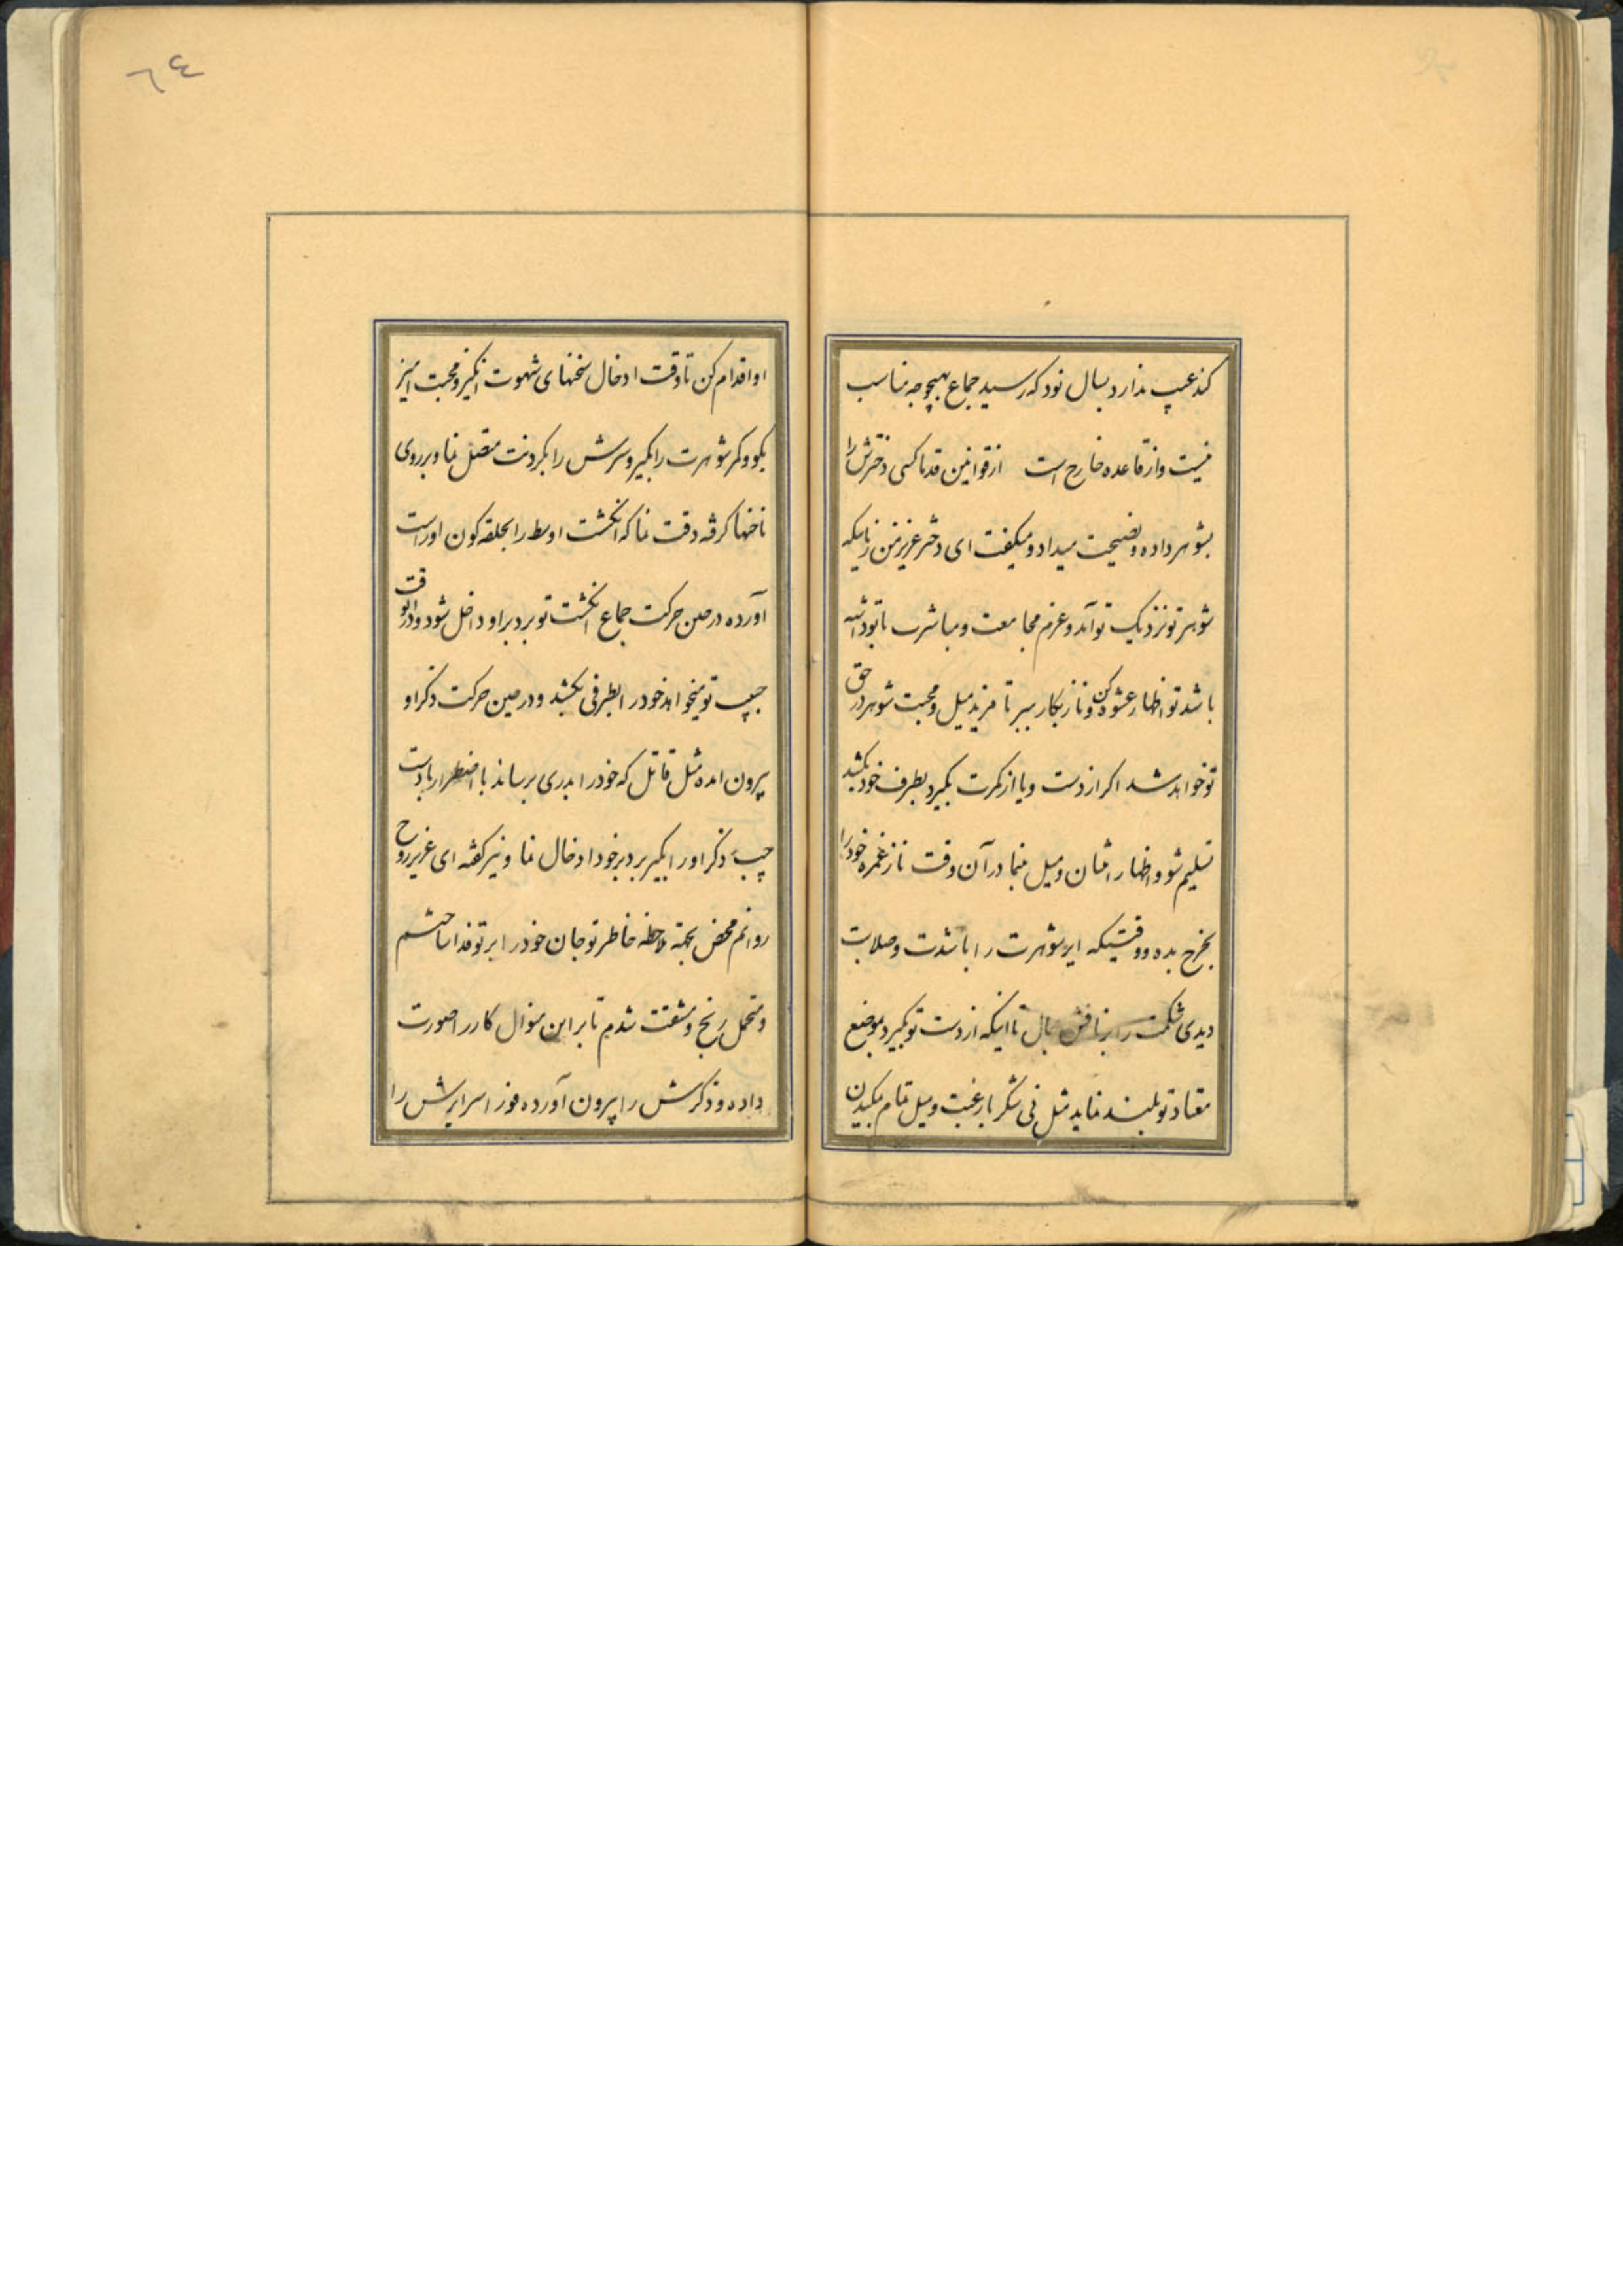 کند عیب ندارد بسال نود که رسید جماع بهیچوجه مناسب
نیست و از قاعده خارج است از قوانین قدما کسی دخترش را
بشوهر داده و نصیحت میداد و میگفت ای دختر عزیز من زمانیکه
شوهر تو نزدیک تو آمد و عزم مجامعت و مباشرت با تو داشته
باشد تو اظهار عشوه کن و ناز بکار ببر تا مزید میل و محبت شوهر در حق
تو خواهد شد اکر از دست و یا از کمرت بکیرد بطرف خود بکشد
تسلیم شو و اظهار اشان و میل بنما در آن وقت ناز غمزه خود را
بخرج بده و وقتیکه ایر شوهرت را با شدت و صلابت
دیدی شکمت را بر نافش بمال تا اینکه از دست تو بکیرد بموضع
معتاد تو بلند نماید مثل نی شکر با رغبت و میل تمام بمکیدن
او اقدام کن تا وقت ادخال سخنهای شهوت انکیز و محبت امیز
بکو و کمر شوهرت را بکیر و سرش را بکردنت متصل نما و بر روی
ناخنها کرفته دقت نما که انکشت اوسط را بحلقه کون او راست
آورده در حین حرکت جماع انکشت تو بر دبر او داخل شود و در انوقت
حبیب تو میخواهد خود را بطرفی بکشد و در حین حرکت ذکر او
بیرون امده مثل قاتل که خود را بدری برساند با اضطرار با دست
چپ ذکر او را بکیر بر دبر خود ادخال نما و نیز کفته ای عزیز روح
روانم محض بجهة ملاحظه خاطر تو جان خود را بر تو فدا ساختم
و متحمل رنج و مشقت شدم تا بر این منوال کار را صورت
داده و ذکرش را بیرون آورده فورا سر ایرش را
٦٤